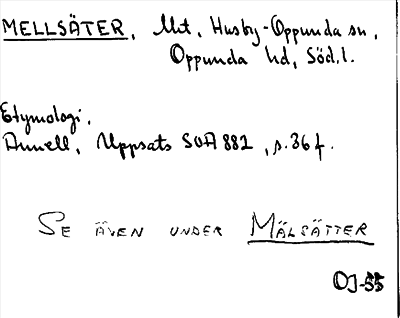 MELLSÄTER, Mt, Husby-Oppunda sn,
Oppunda hd, Södl.
Etymologi.
Annell, Uppsats SOA 882, s. 36 f.
SE ÄVEN UNDER MÄLSÄTTER
OJ-55